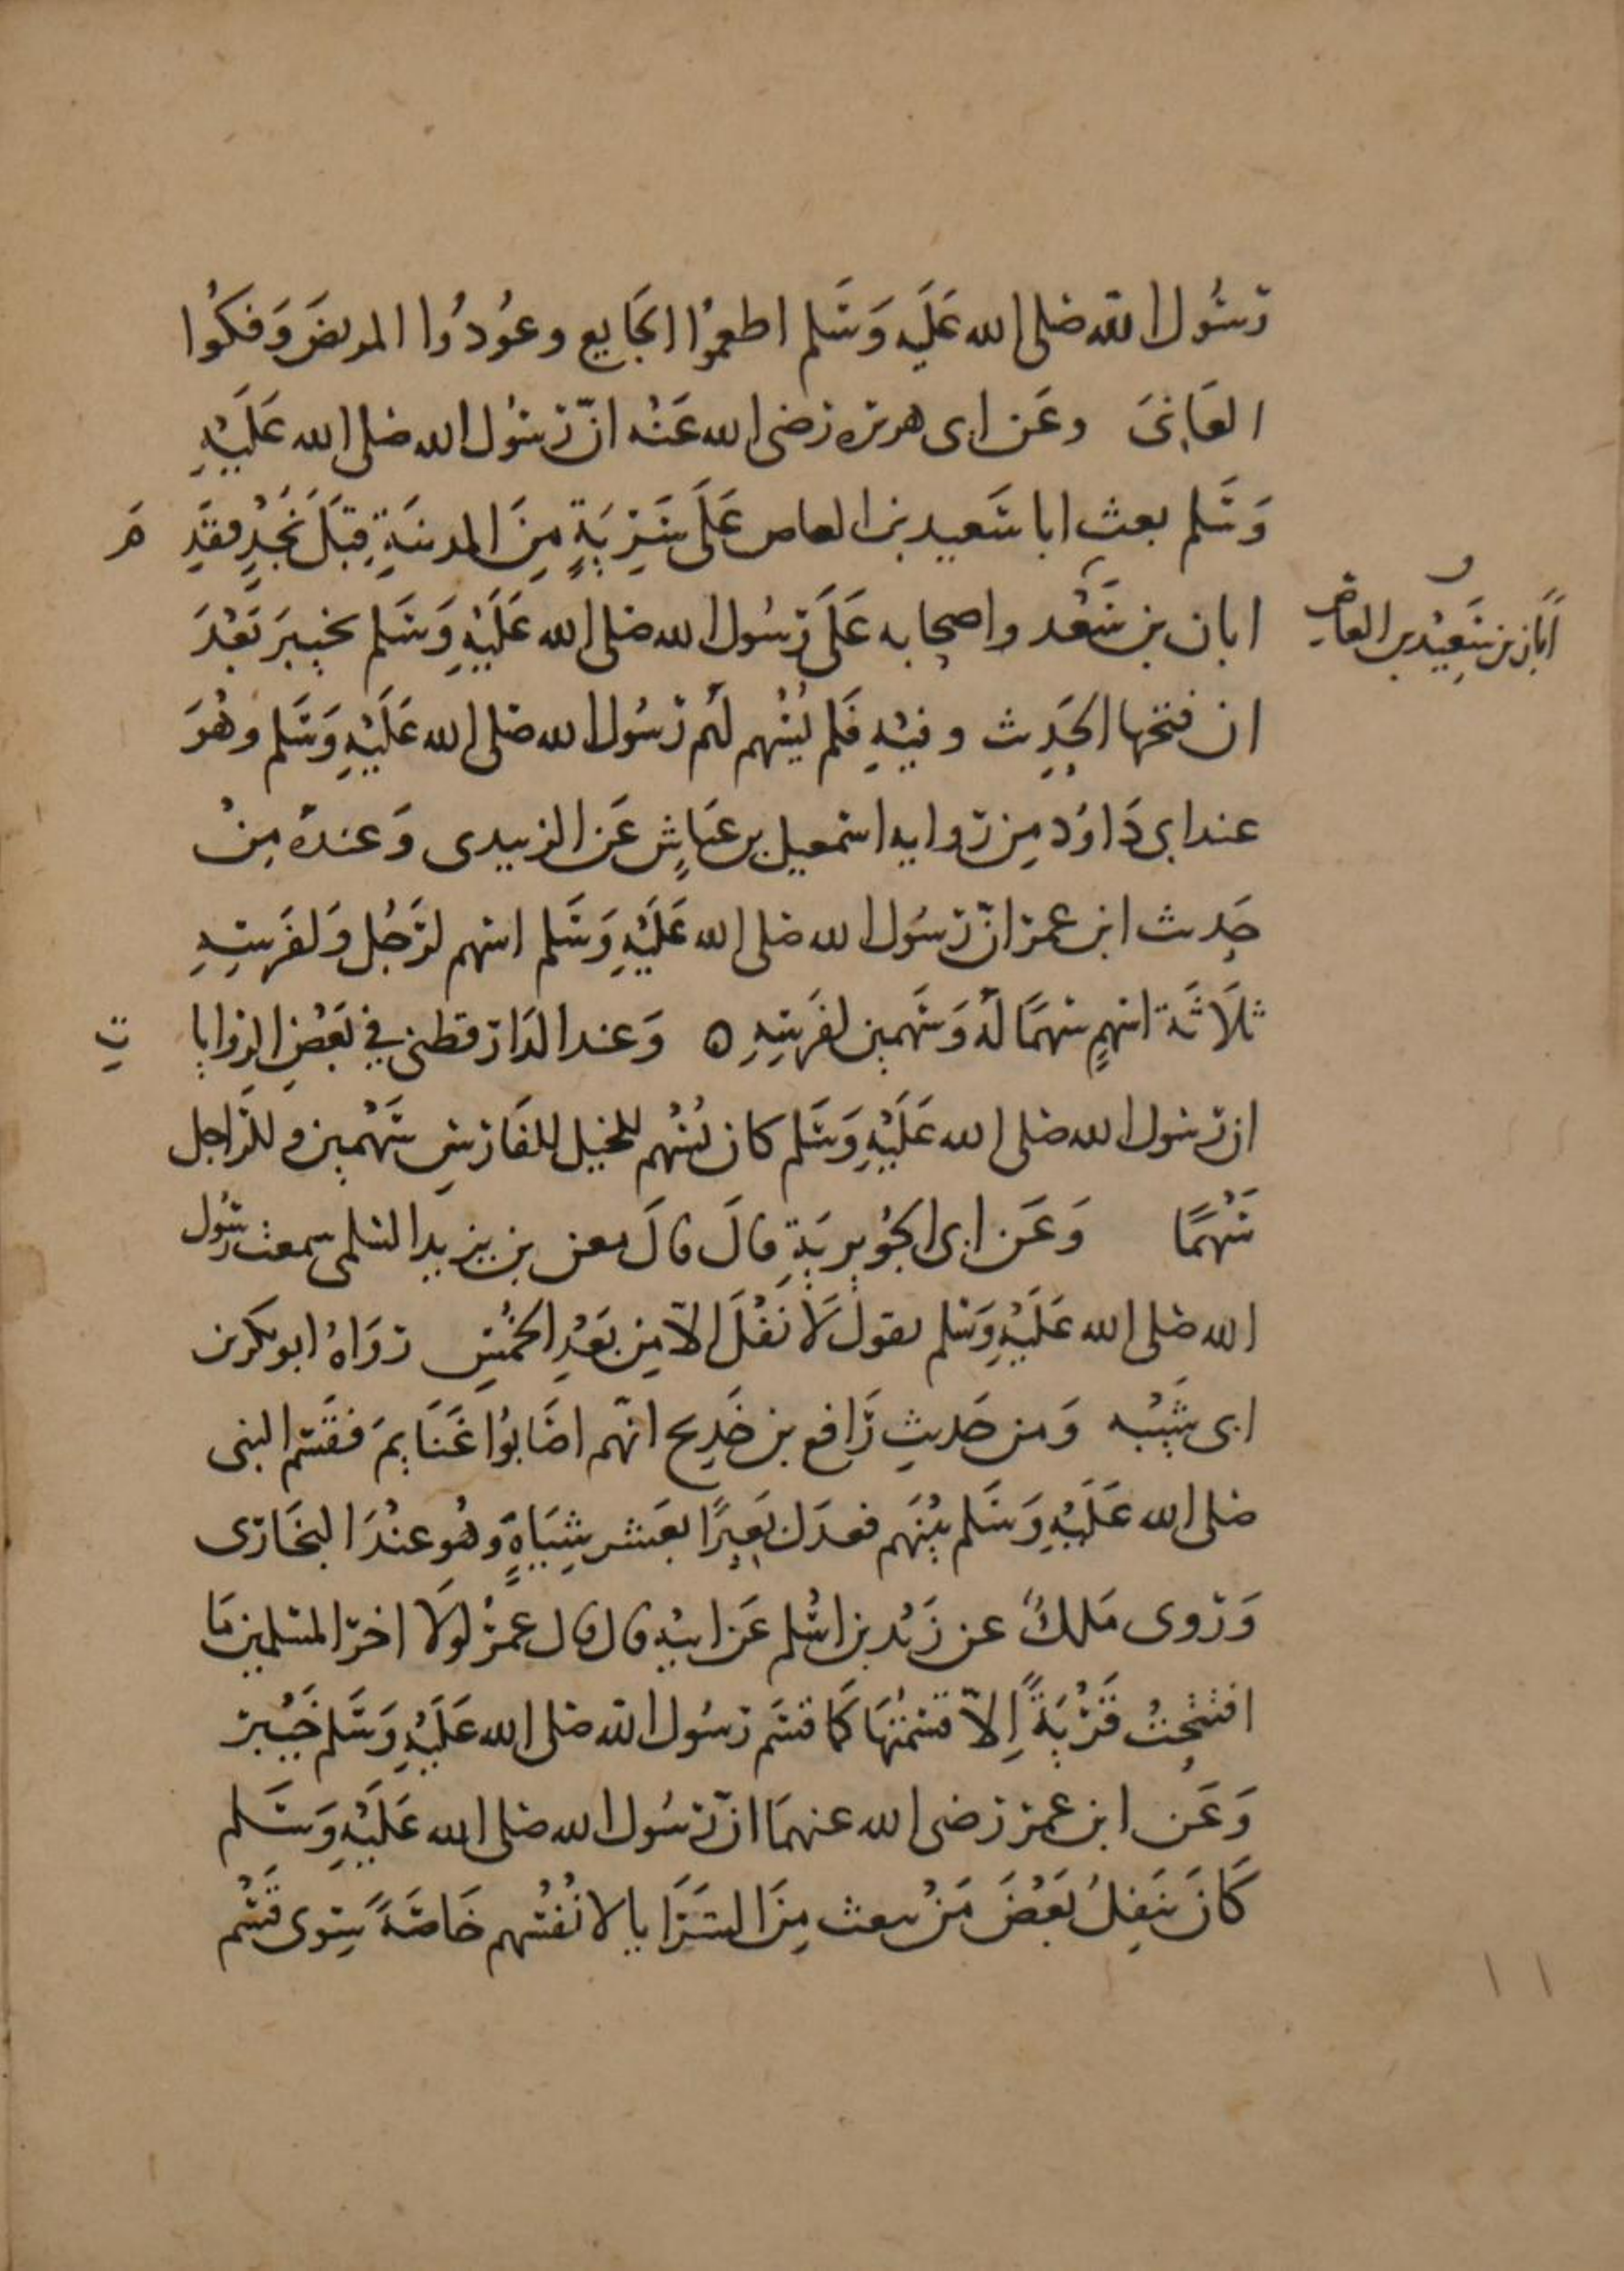 رسُول الله صلى الله عَلَيه وَسَلم اطعمُوا الجَايع وعُودُوا المريضَ وَفكُوا
العَانىَ وعَن ابى هريره رضى الله عَنْه انّ رسُول الله صلى الله عَلَيْهِ
وَسَلم بعث ابا سَعيد بن العاص عَلَى سَرِيَةٍ مِنَ المدينَةِ قِبَلَ نَجْدٍ فقَدِ مَ
ابان بن سَعْد واصحابه عَلَى رَسُول الله صلى الله عَلَيْهِ وَسَلم بخيبرَ بَعْدَ
اَبَان بن سَعِيْد بن العاص
ان فتحها الحَدِيث وفيْهِ فَلم يُسْهم لَهُم رَسُول الله صلى الله عَلَيْهِ وَسَلم وهُوَ
عند ابى دَاوُد مِن روايه اسمعيل بن عيَاشٍ عَن الزبيدى وَعندهُ مِنْ
حَدِيث ابن عمرَ انّ رسُول الله صلى الله عَلَيْهِ وَسَلم اسهم لرَجُل وَلفَرسِهِ
ثلَاثَة اسهمٍ سهمًا لَهُ وَسَهمين لفَرسِهِ ه وَعند الدَارقطنى في بَعْضِ الروايا تِ
ان رسُول الله صلى الله عَلَيْهِ وَسَلم كان يُسْهُم للخيل للفَارسِ سَهْمين وللرَاجل
سَهْمًا وَعَن ابى الجُويريَةِ قالَ قالَ معن بن يزيد السلمى سمعت رسُول
الله صلى الله عَلَيْهِ وَسَلم يقول لَا نَفْلَ الّا مِن بَعْدِ الخمُسِ رَوَاهُ ابو بكر بن
ابى شَيْبه وَمن حَديثِ رَافع بن خَدِيج انّهم اصَابُوا غَنَايمَ فقَسَم النبى
صلى الله عَلَيْهِ وَسَلم بيْنَهم فعدَل بَعِيرًا بعَشر شِيَاهٍ وَهُو عنْدَ البخَارى
وَروى مَلكٌ عن زَيْد بن اسْلم عَن ابيْهِ قال قال عمرُ لولَا اخر المسلمين مَا
افتُتِحتْ قَرْيَةً اِلّا قسَمْتهَا كَمَا قسَم رَسُول الله صلى الله عَلَيْهِ وَسَلم خَيْبر
وَعَن ابن عمر رَضى الله عنهمَا انّ رسُول الله صلى الله عَلَيْهِ وَسَلم
كَانَ يَنفِلُ بَعْضَ مَنْ يبعث مِنَ السَرَايا لانْفُسهم خَاصَةً سِوى قَسْم